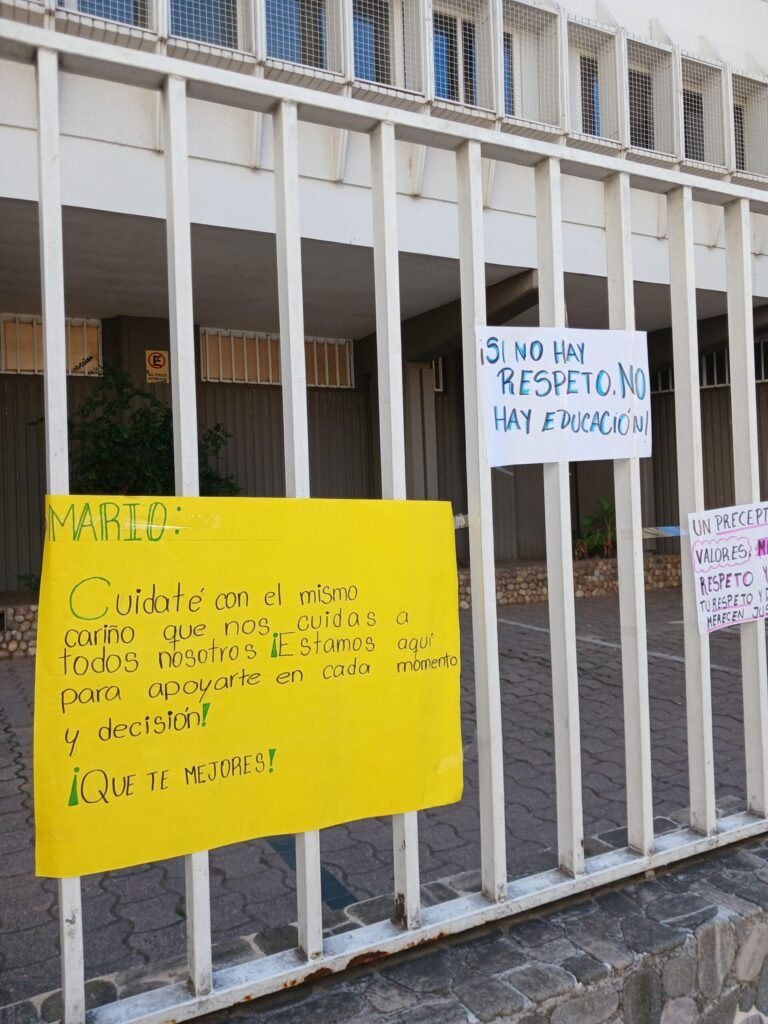 MARIO:
Cuidaté con el mismo
cariño que nos cuidas a
todos nosotros ¡Estamos aquí
para apoyarte en cada momento
y decisión!
¡QUE TE MEJORES!
¡SI NO HAY
RESPETO. NO
HAY EDUCACIÓN!
UN PRECEPT
VALORES,
RESPETO Y
TU RESPETO Y
MERECEN JUS